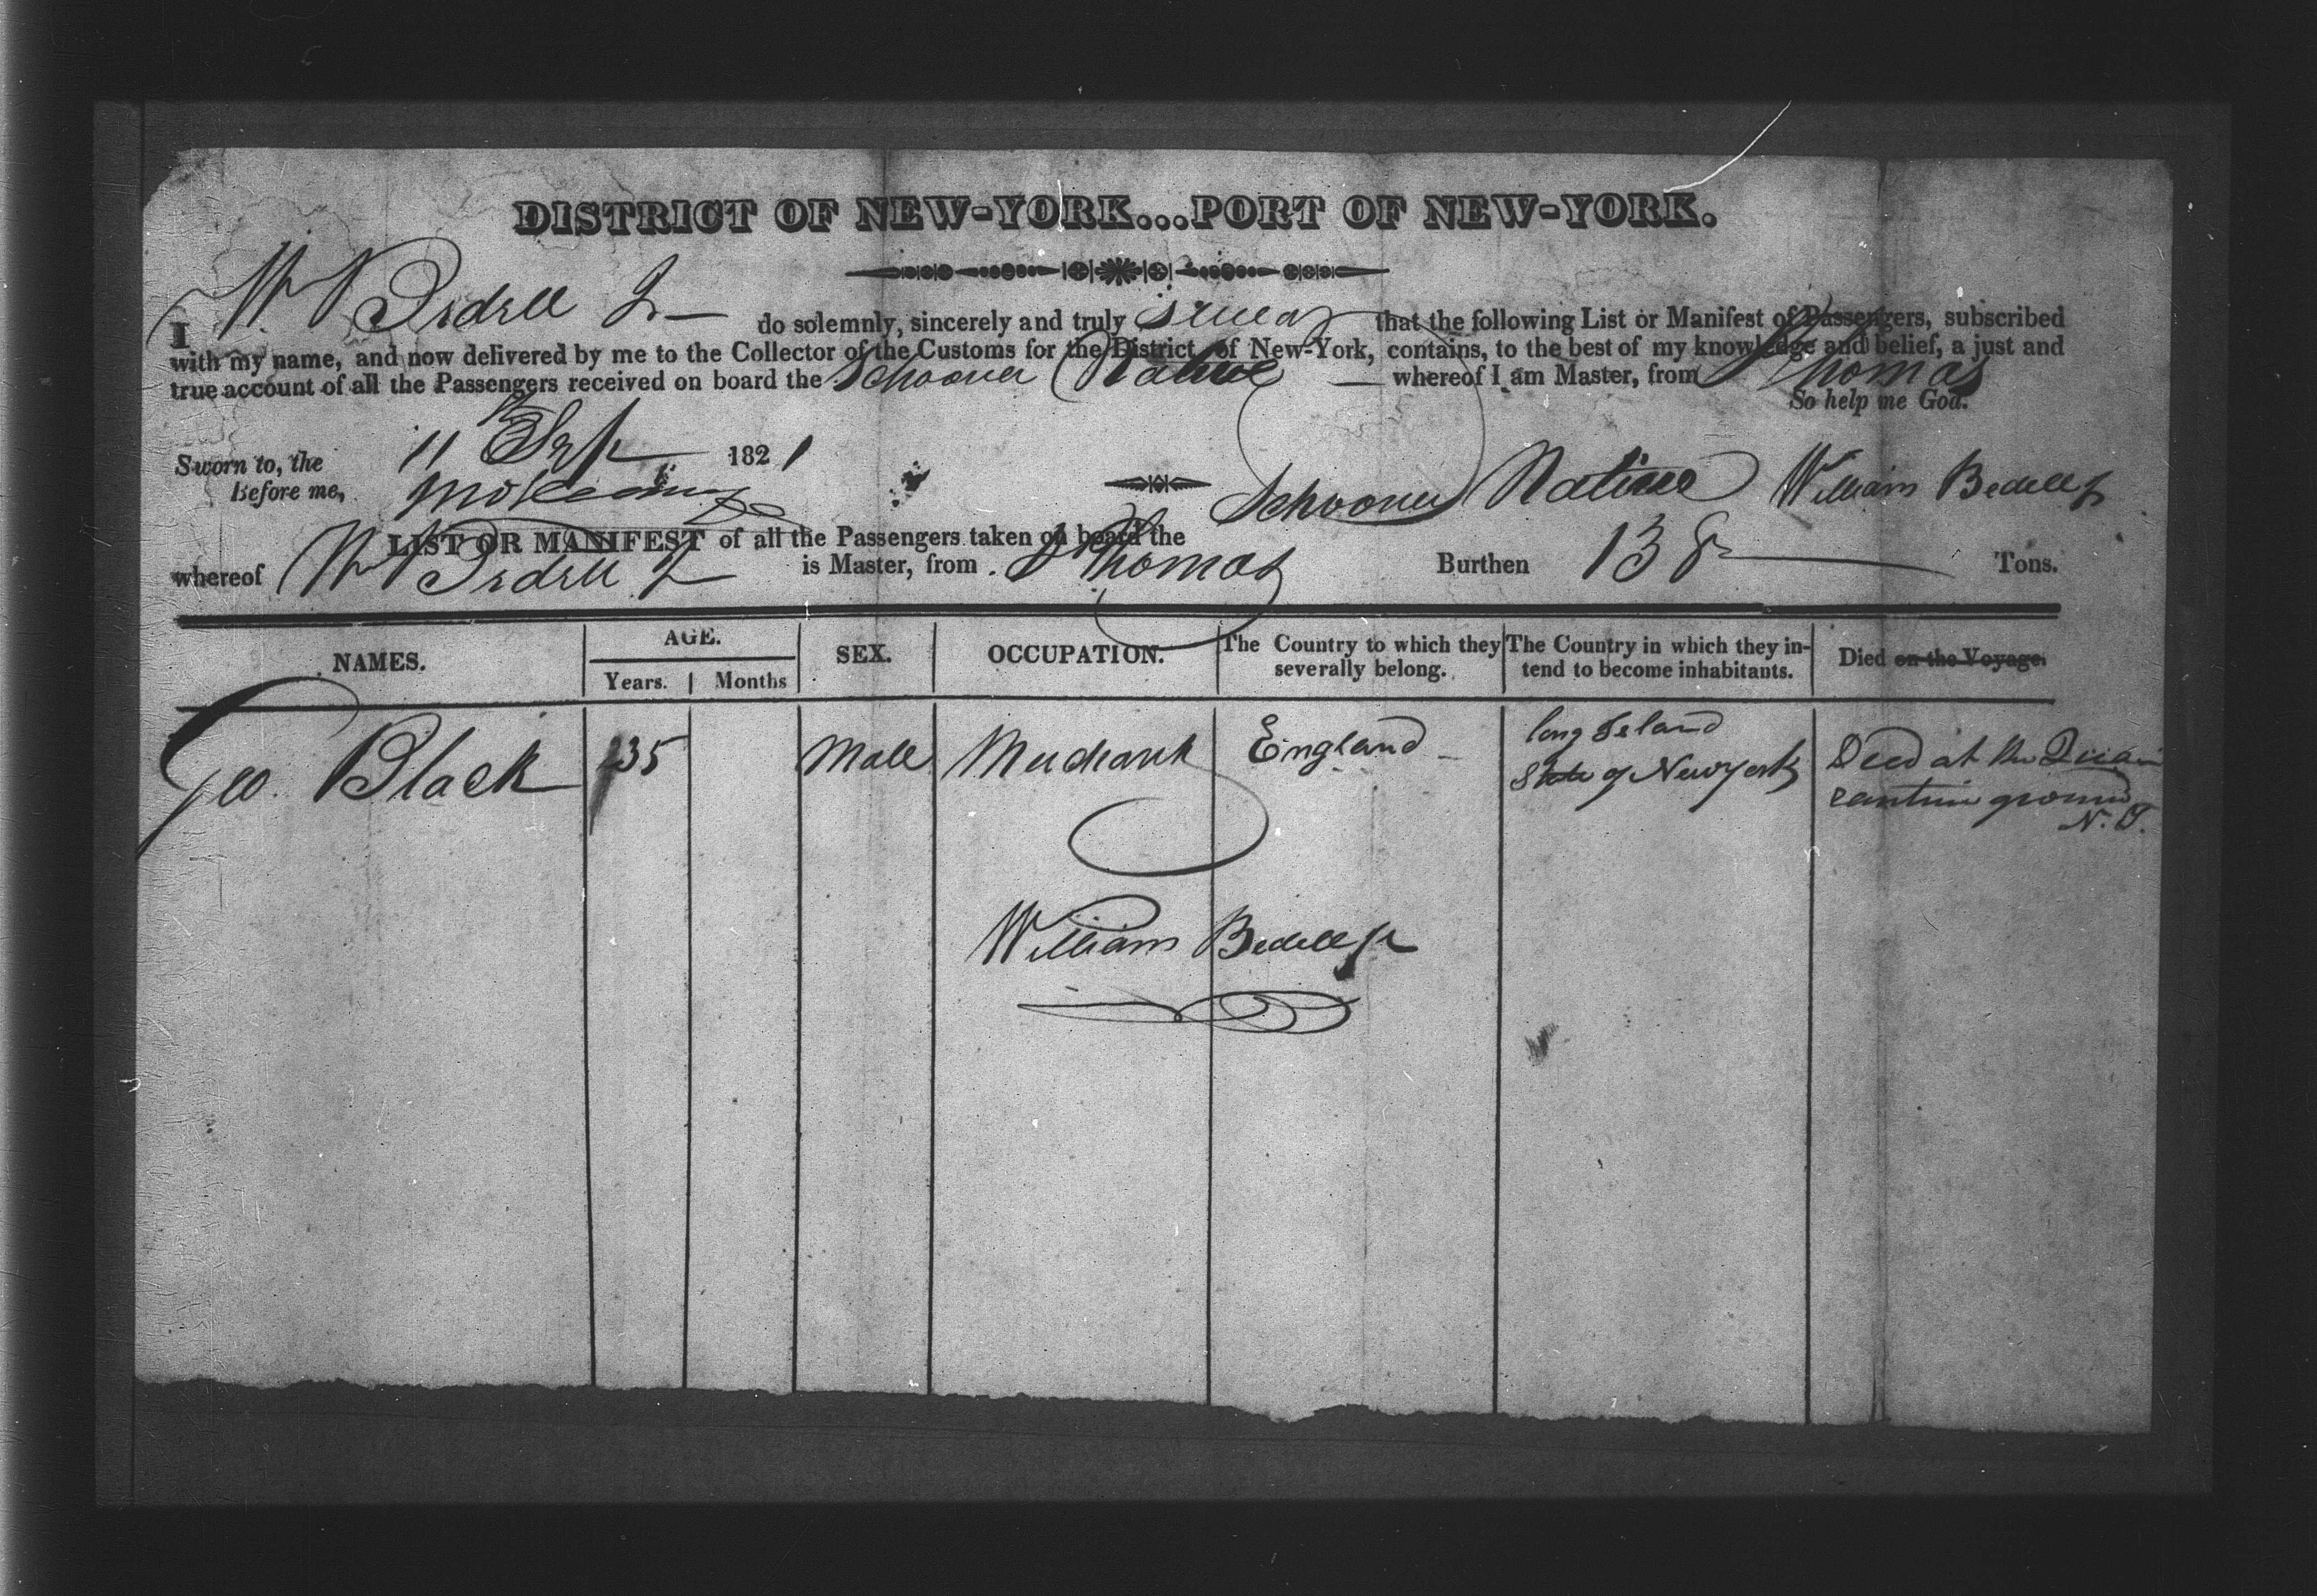 DISTRICT OF NEW-YORK...PORT OF NEW-YORK.
I Wm Bedell Jr do solemnly, sincerely and truly swear that the following List or Manifest of Passengers, subscribed
with my name, and now delivered by me to the Collector of the Customs for the District of New-York, contains, to the best of my knowledge and belief, a just and
true account of all the Passengers received on board the Schooner Native whereof I am Master, from St Thomas
So help me God.
Sworn to, the 11th Sep 1821
Before me,
William Bedell Jr
LIST OR MANIFEST of all the Passengers taken on board the Schooner Native
whereof Wm Bedell Jr is Master, from St Thomas Burthen 138 Tons.
NAMES. AGE. Years. Months SEX. OCCUPATION. The Country to which they severally belong. The Country in which they intend to become inhabitants. Died on the Voyage.
Geo. Black 35 Male Merchant England long Island
State of New york
Died at the Quar
rantine ground
William Bedell Jr